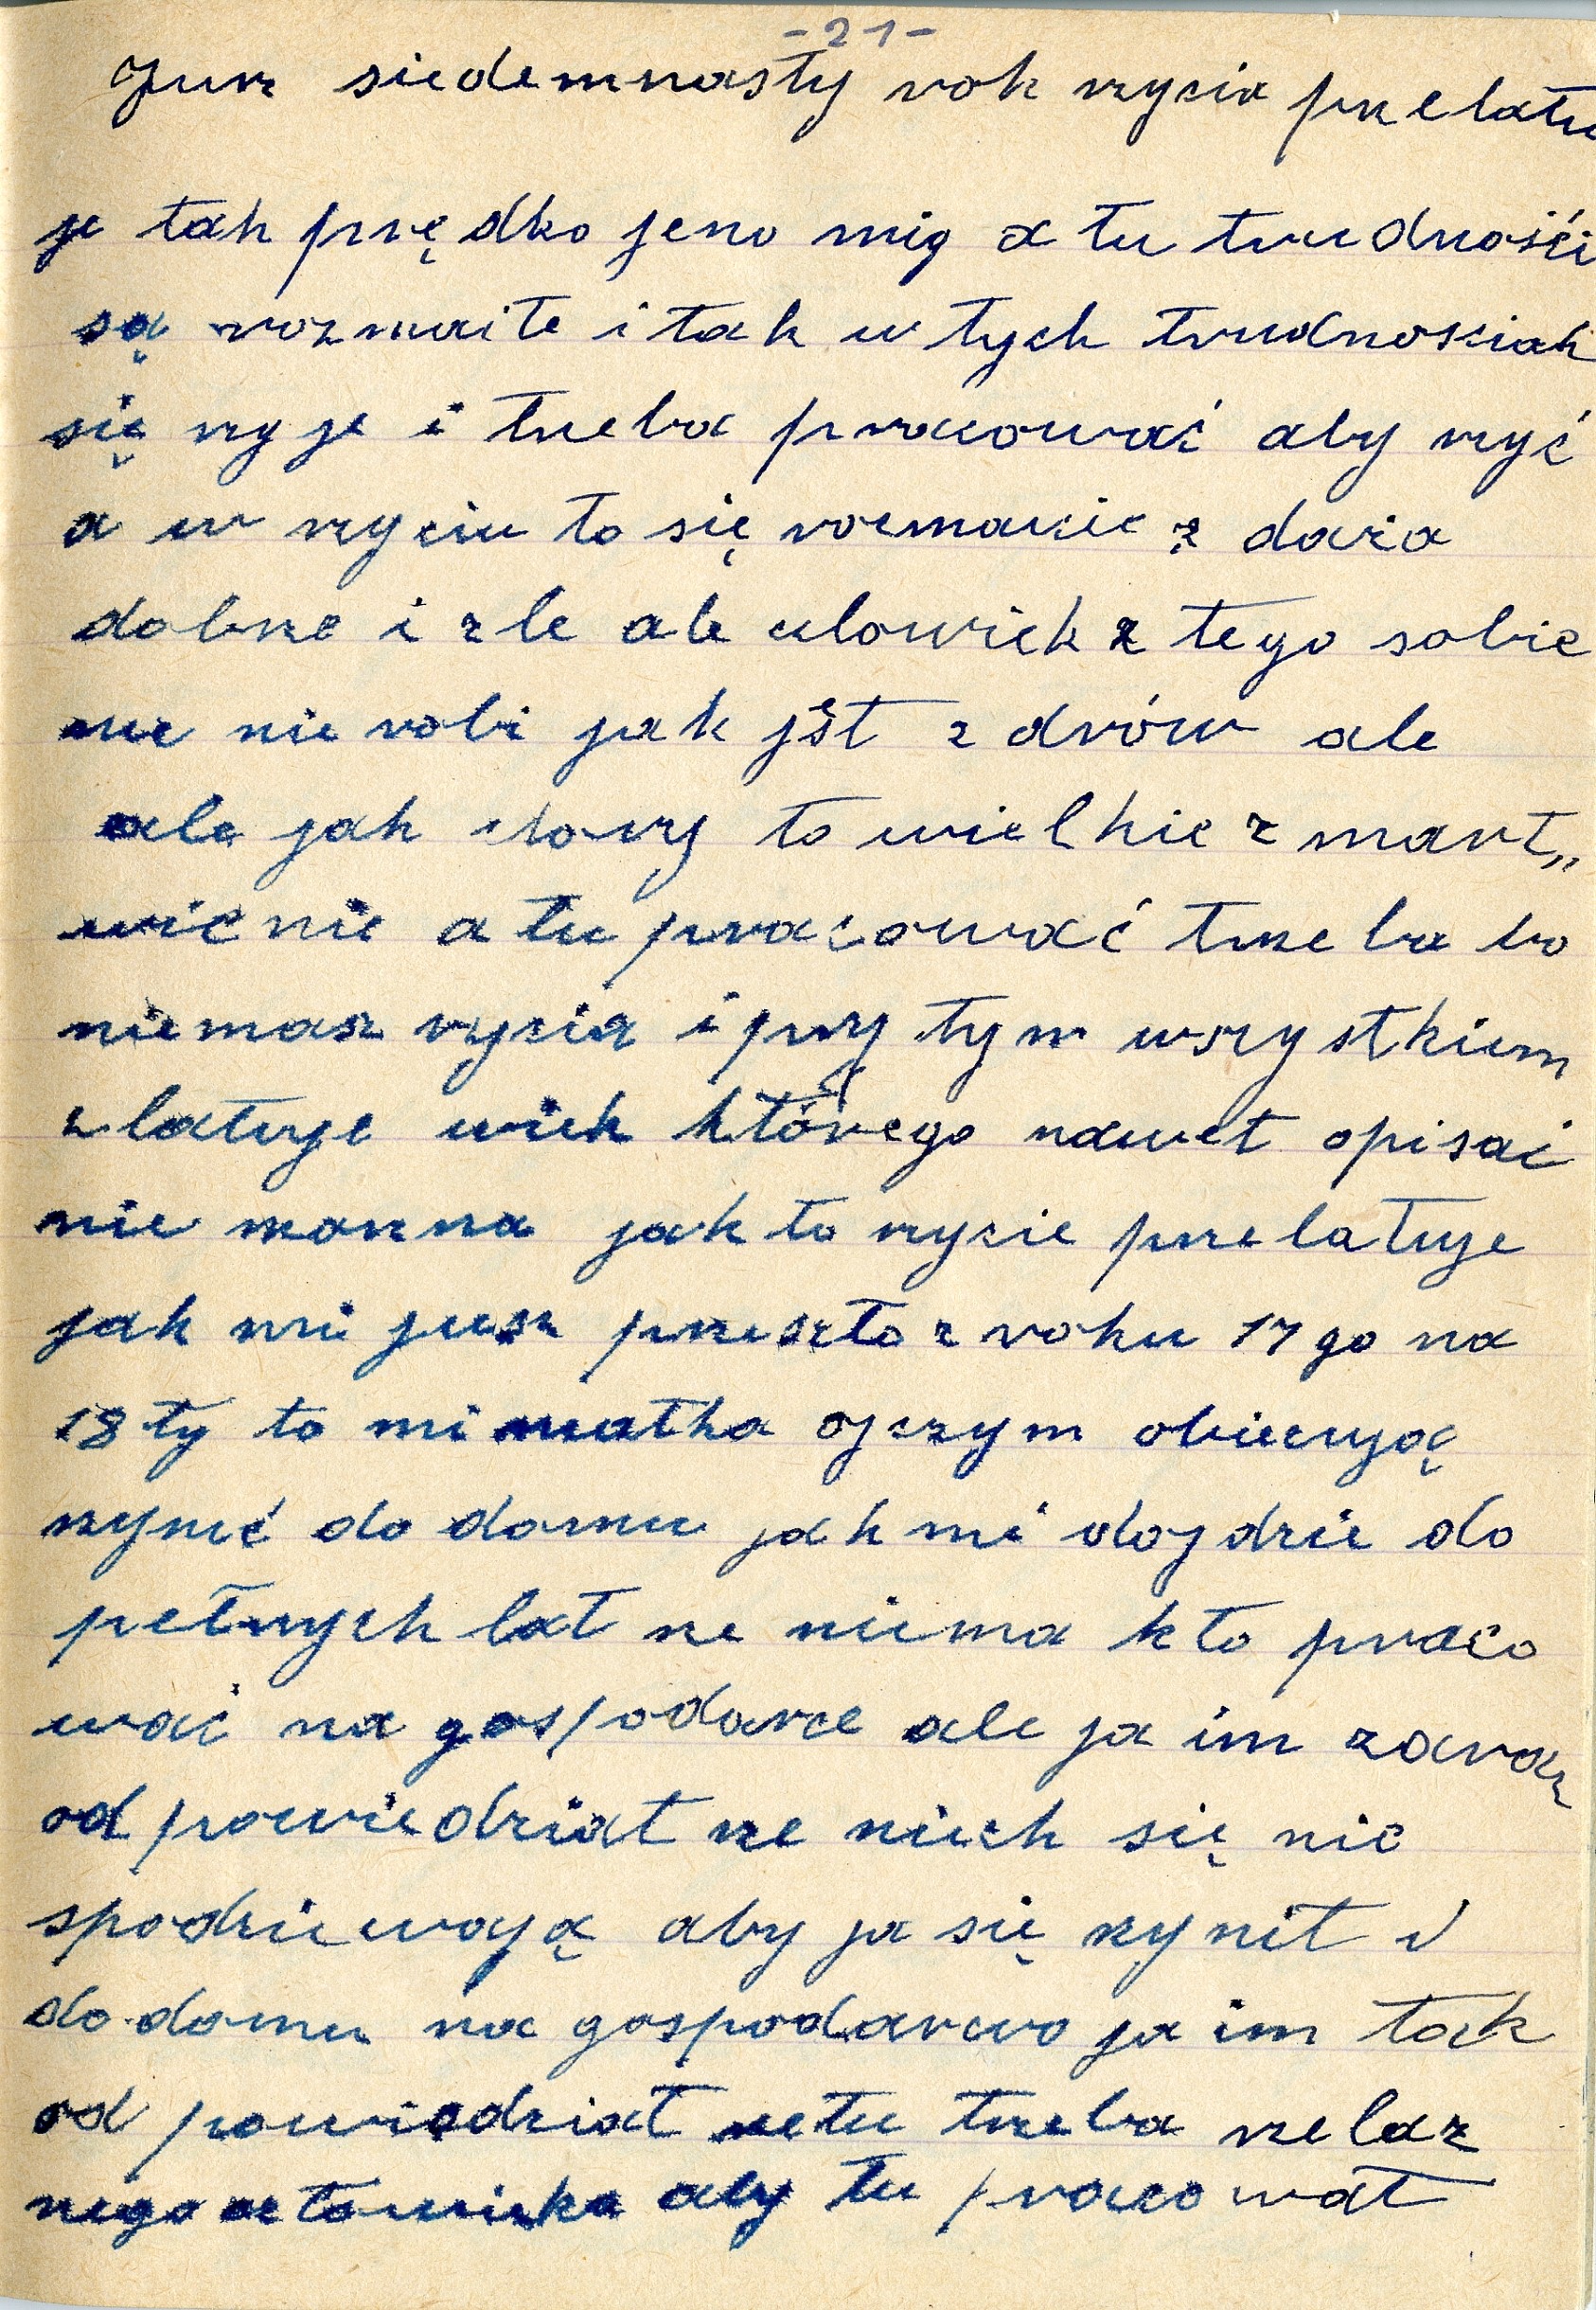 -21-
Jurz siedemnasty rok rzycia przelatu
je tak prędko jeno mig a tu trudnośći
są rozmaite i tak w tych trudnosciah
się rzyje i trzeba pracować aby rzyć
a w rzyciu to się rozmaicie z daża
dobrze i zle ale człowiek z tego sobie
nic nie robi jak jest zdrów ale
ale jak chory to wielkie zmart„
wienie a tu pracować trzeba bo
niemasz rzycia i przy tym wszystkiem
zlatuje wiek którego nawet opisać
nie morzna jak to rzycie przelatuje
jak mi jusz przeszło z roku 17 go na
18 ty to mi matka ojczym obiecują
rzynić do domu jak mi dojdzie do
pełnych lat rze niema kto praco
wać na gospodarce ale ja im zaraz
odpowiedział rze niech się nie
spodziewają aby ja się rzynił
do domu na gospodarwo ja im tak
od powiedział rze tu trzeba rzelaz
nego człowieka aby tu pracował